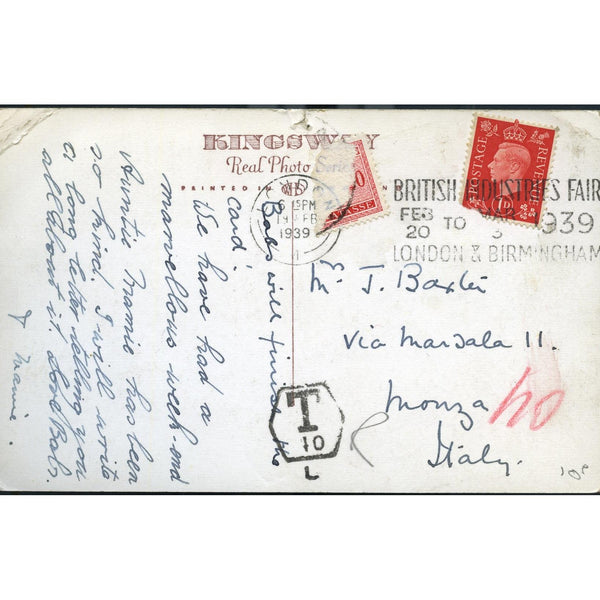 KINGSWAY
Real Photo Series
PRINTED IN
POSTAGE
REVENUE
1D
15PM
FEB
1939
ASSE
BRITISH INDUSTRIES FAIR
FEB
20 TO 3 1939
LONDON & BIRMINGHAM
Mrs J. Baxter
Via Marsala 11.
Monza
Italy.
T
10
L
40
Babs will finish the
card.
We have had a
marvellous week-end
Auntie Mamie has been
so kind. I will write
a long letter telling you
all about it. Love Babs.
& Mamie.